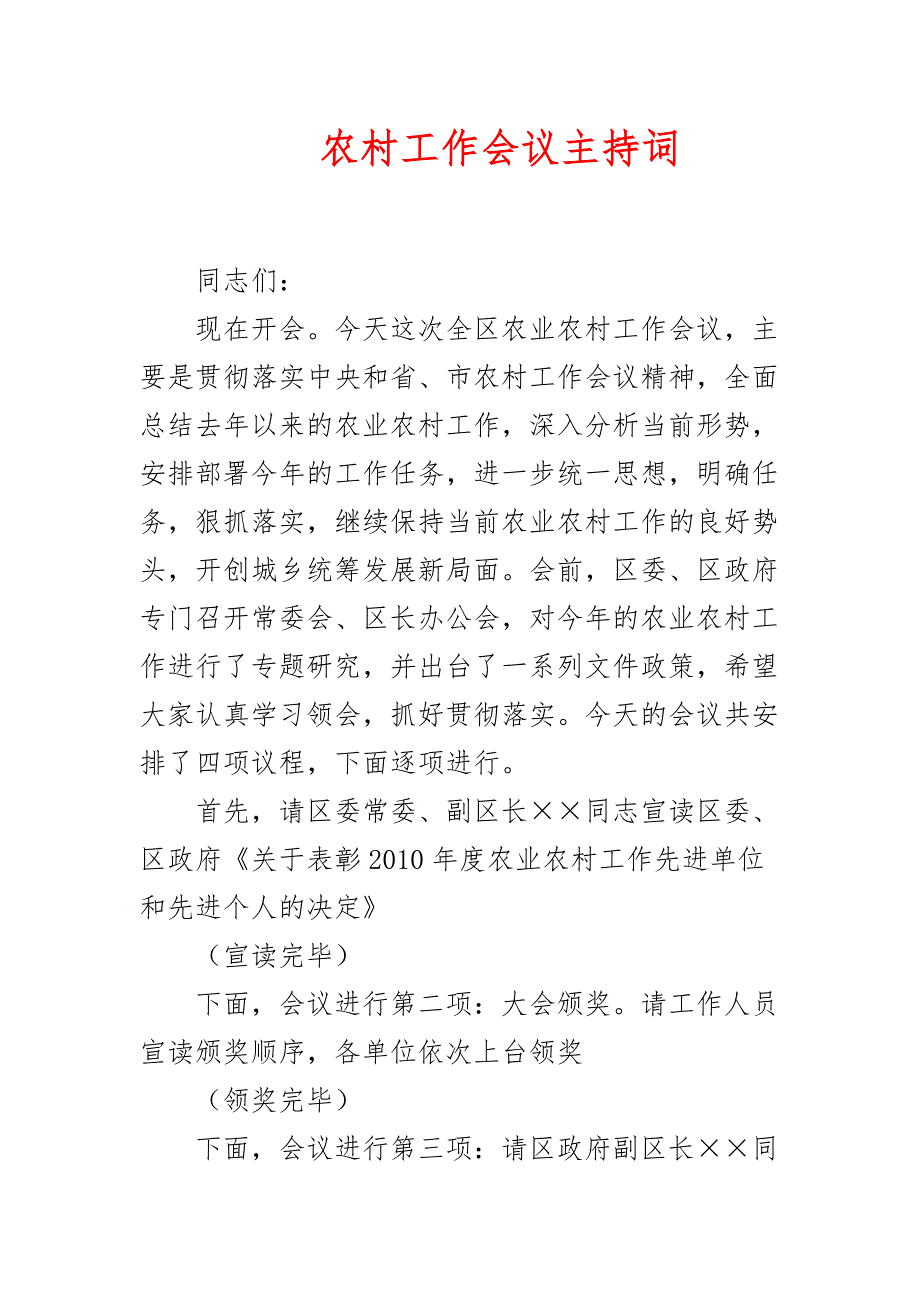 农村工作会议主持词
同志们：
现在开会。今天这次全区农业农村工作会议，主
要是贯彻落实中央和省、市农村工作会议精神，全面
总结去年以来的农业农村工作，深入分析当前形势，
安排部署今年的工作任务，进一步统一思想，明确任
务，狠抓落实，继续保持当前农业农村工作的良好势
头，开创城乡统筹发展新局面。会前，区委、区政府
专门召开常委会、区长办公会，对今年的农业农村工
作进行了专题研究，并出台了一系列文件政策，希望
大家认真学习领会，抓好贯彻落实。今天的会议共安
排了四项议程，下面逐项进行。
首先，请区委常委、副区长××同志宣读区委、
区政府《关于表彰 2010 年度农业农村工作先进单位
和先进个人的决定》
（宣读完毕）
下面，会议进行第二项：大会颁奖。请工作人员
宣读颁奖顺序，各单位依次上台领奖
（领奖完毕）
下面，会议进行第三项：请区政府副区长××同